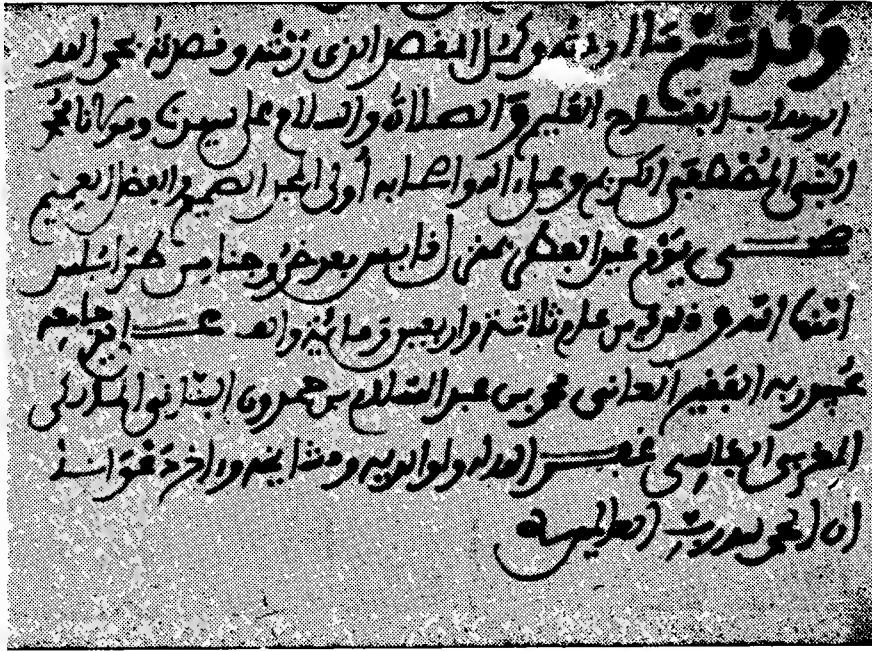 وَقَد تَمَّ مَا أردته وكمل المقصد الذي رمته وقصدته بحمد الله
الوهاب الفتاح العليم وَالصلاةُ والسلام على سيدنا ومولانا محمد
النَّبي المُصْطفى الكريم وعلى ءاله وأصحابه أولي المجد الصميم والفضل العميم
ضحى يَوْم عيد الفطر بمدينة قابس بعد خرُوجنا من طرَابلس
أمنها الله وذلك من عام ثلاثة وأربعين وَمائة وألف على يد جامعه
عُبيد ربه الفقير الجاني محمد بن عبد السَّلام بن حمدون البنّاني
المغربي الفاسي غفر الله له ولوالديه ومشايخه وءاخر دَعْوَانا
أن الحمد لله ربِّ العالمين